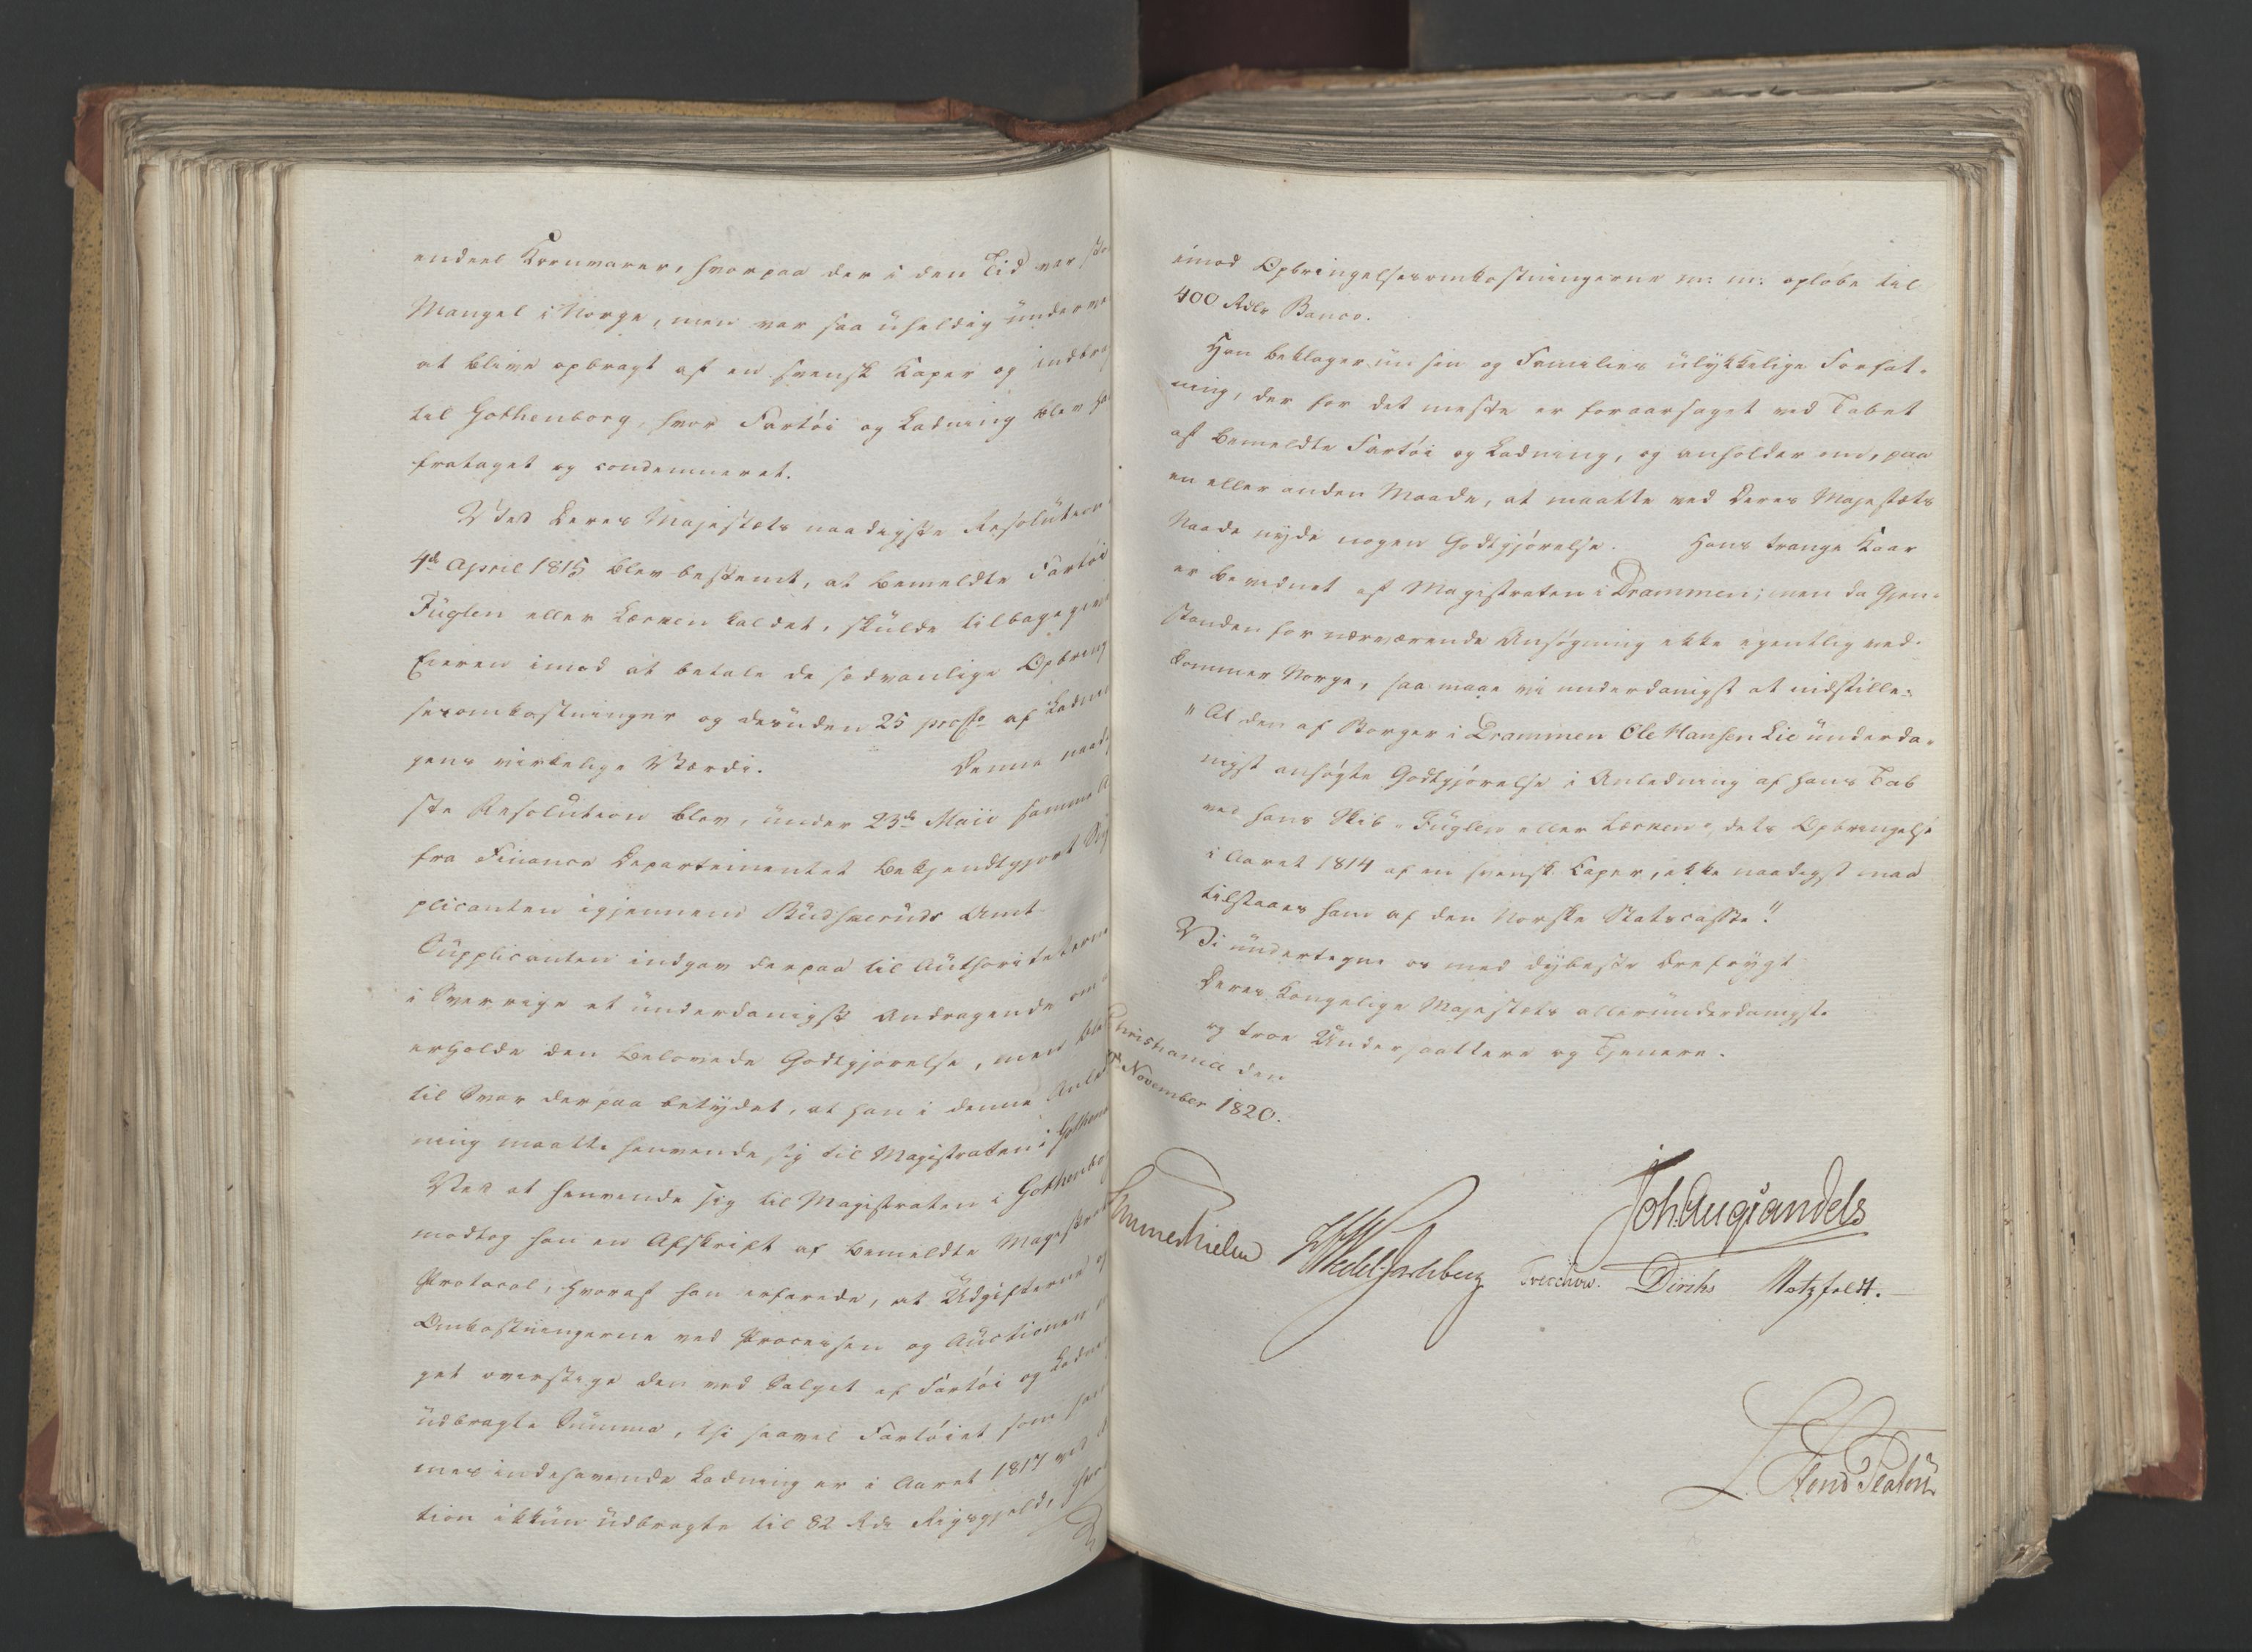 endeel Kornvarer, hvorpaa der i den Tid var
Mangel i Norge, men var saa uheldig underve
at blive opbragt af en svensk Kaper og indbra
til Gothenborg, hvor Fartøi og Ladning blev ha
frataget og condemneret.
Ved Deres Majestæts naadigste Resolution
4de April 1815 blev bestemt, at bemeldte Fartøi
Fuglen eller Lærken kaldet, skulde tilbagegive
Eieren imod at betale de sædvanlige Opbring
sesomkostninger og desuden 25 procto af Ladnin
gens virkelige Værdi. Denne naadi
ste Resolution blev, under 23de Maii samme A
fra Finance Departementet bekjendtgjort Sup
plicanten igjennem Budskeruds Amt
Supplicanten indgav derpaa til Authoriteterne
i Sverrige et underdanigst Andragende om a
erholde den belovede Godtgjørelse, men blev
til Svar derpaa betydet, at han i denne Anled
ning maatte henvende sig til Magistraten i Gothenb
Ved at henvende sig til Magistraten i Gothenbor
modtog han en Afskrift af bemeldte Magistrats
Protocol, hvoraf han erfarede, at Udgifterne og
Omkostningerne ved Processen og Auctionen
get overstege den ved Salget af Fartøi og Ladning
udbragte Summa, thi saavel Fartøiet som sam
mes indehavende Ladning er i Aaret 1817 ved
tion ikkun udbragte til 82 Rdr Rigsgjeld, hvor
imod Opbringelsesomkostningerne m: m: opløbe til
400 Rdlr Banco.
Han beklager nu sin og Families ulykkelige Forfat-
ning, der for det meste er foraarsaget ved Tabet
af bemeldte Fartøi og Ladning, og anholder om, paa
en eller anden Maade, at maatte ved Deres Majestæts
Naade nyde nogen Godtgjørelse. Hans trange Kaar
er bevidnet af Magistraten i Drammen; men da Gjen-
standen for nærværende Ansøgning ikke egentlig ved-
kommer Norge, saa maae vi underdanigst at indstille:
"At den af Borger i Drammen Ole Hansen Lie underda-
nigst ansøgte Godtgjørelse i Anledning af hans Tab
ved hans Skib "Fuglen eller Lærken", dets Opbringelse
i Aaret 1814 af en svensk Kaper, ikke naadigst maa
tilstaaes ham af den Norske Statscasse."
Vi undertegne os med dybeste Ærefrygt
Deres Kongelige Majestæts allerunderdanigste
og troe Undersaattere og Tjenere.
Christiania den
November 1820.
Joh. Aug. Sandels
Sommerhielm Wedel Jarlsberg Treschow. Diriks Motzfeldt.